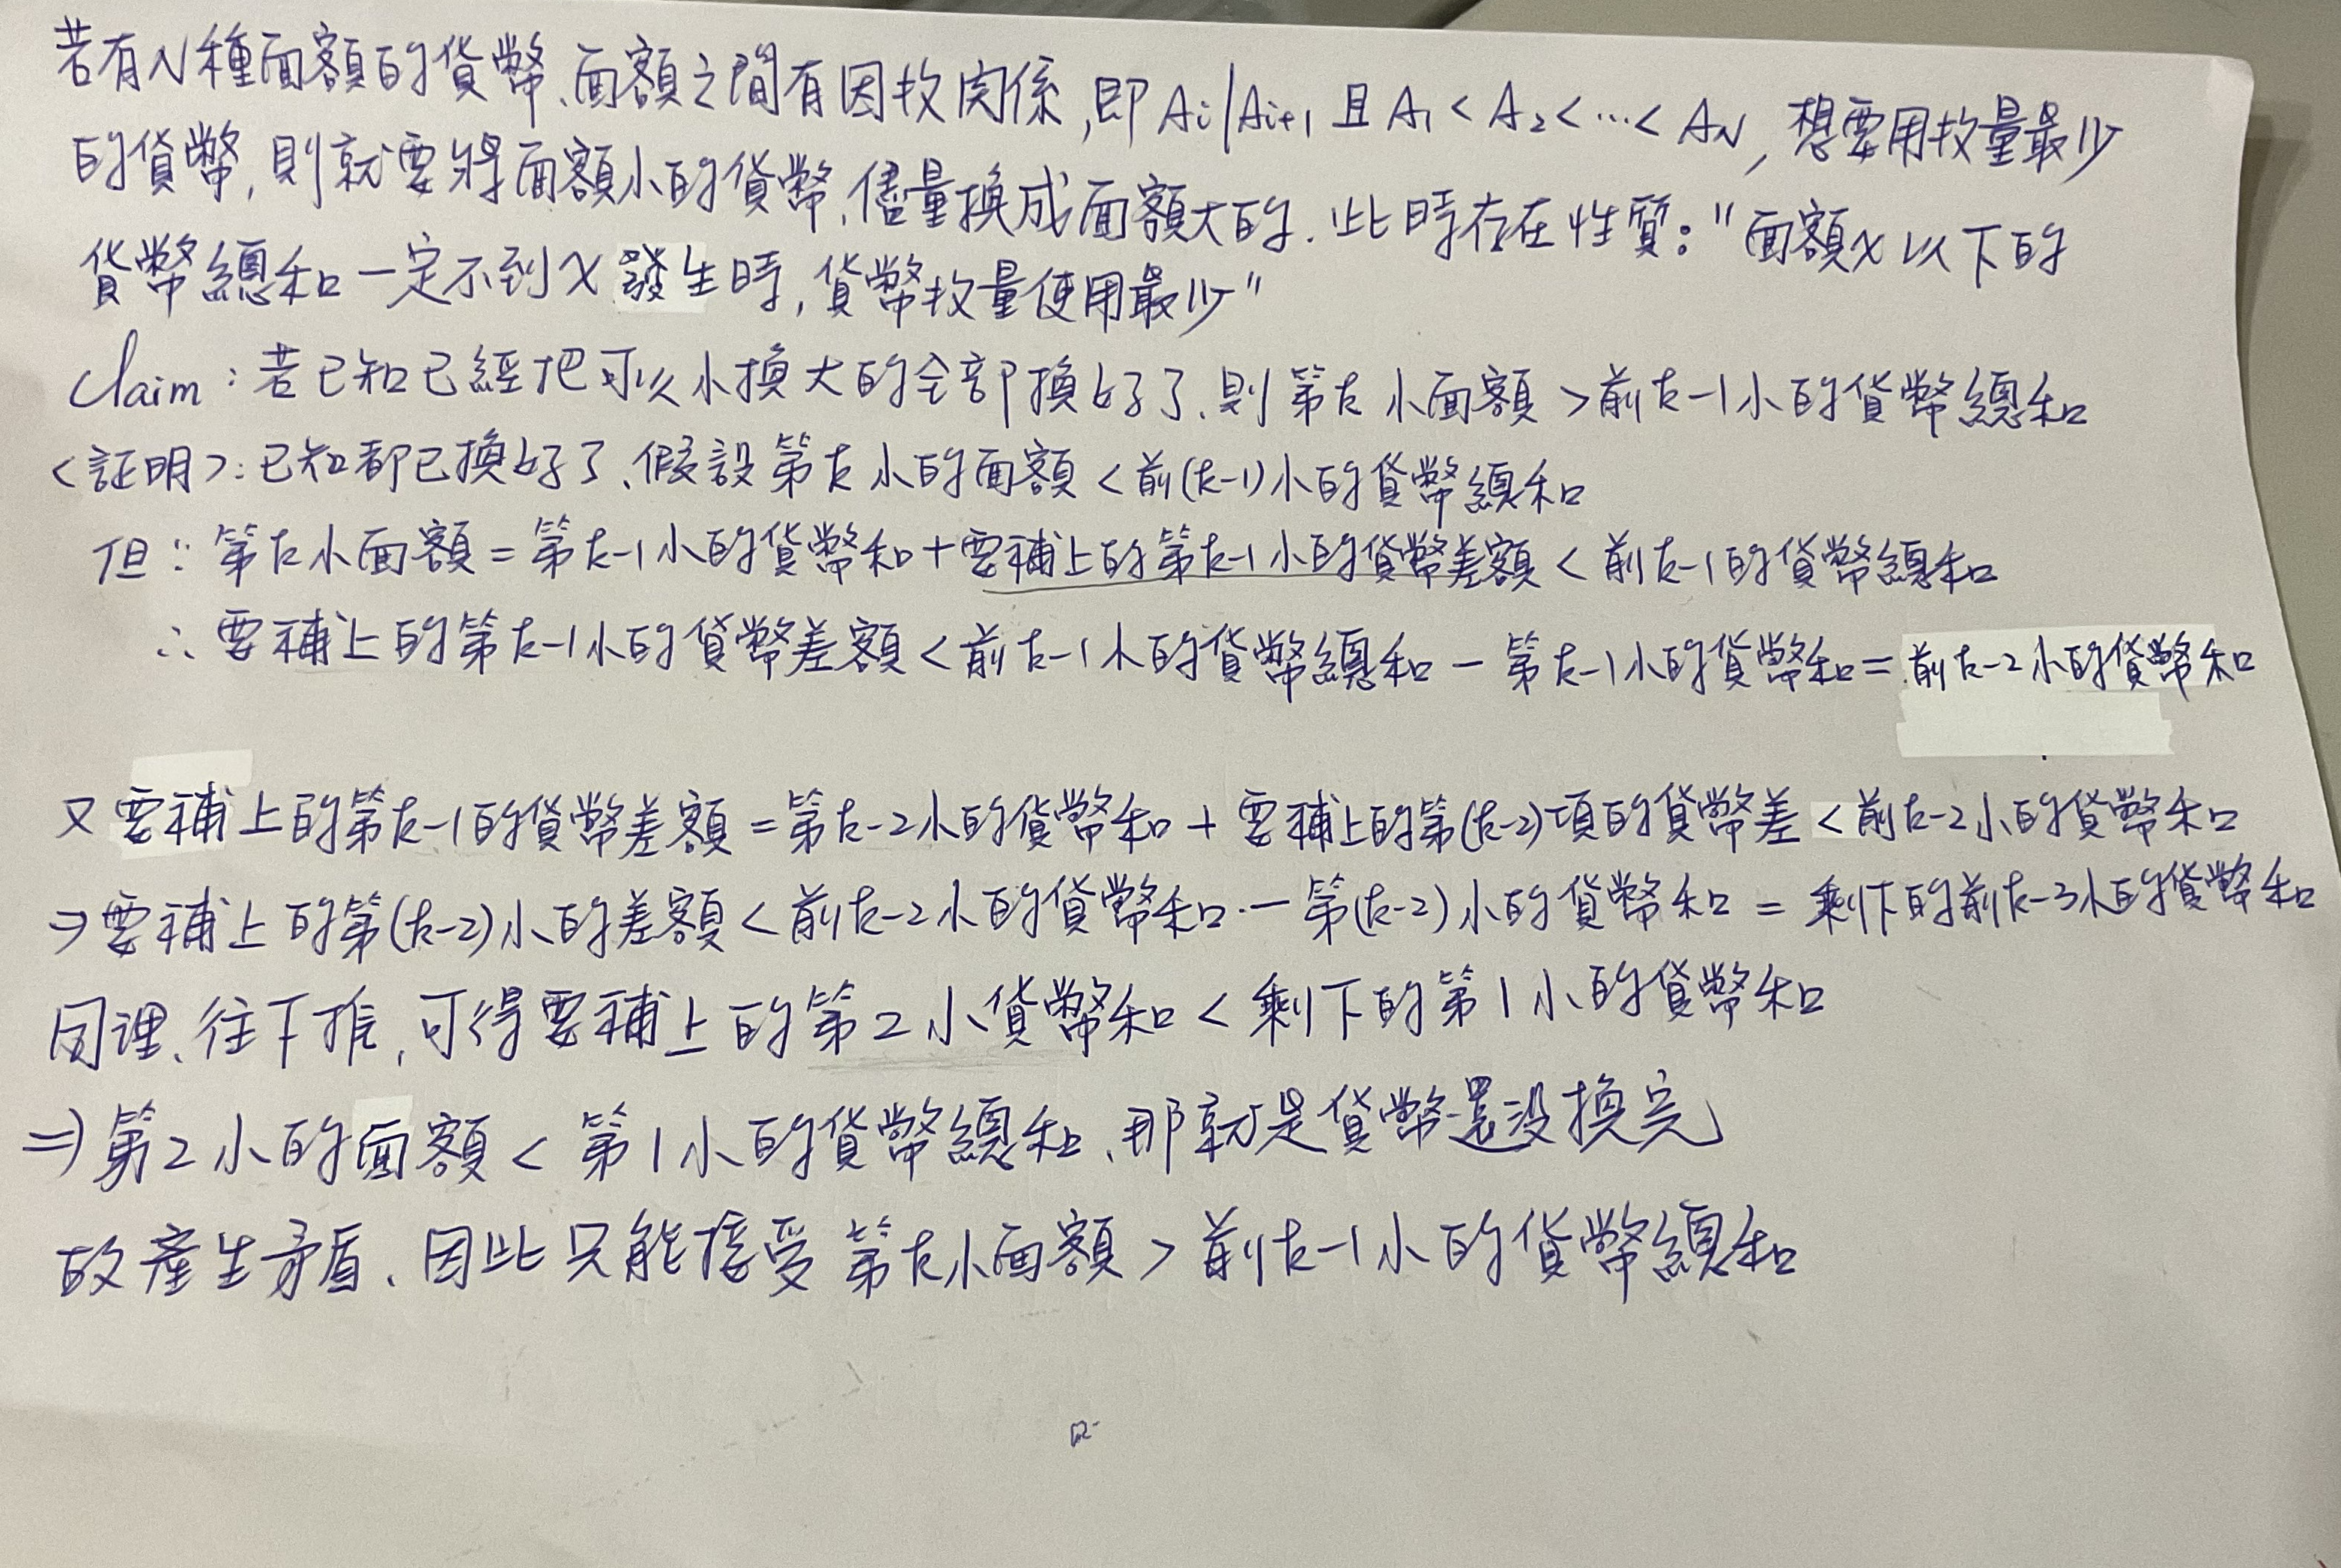 若有N種面額的貨幣、面額之間有因数関係,即 Ai|Ai+1 且 A1 < A2 < ... < AN, 想要用数量最少
的貨幣, 則就要將面額小的貨幣、儘量換成面額大的. 此時存在性質: "面額x以下的
貨幣總和一定不到x發生時, 貨幣数量使用最少"
Claim : 若已知已經把可以小換大的全部換好了、則第k小面額 > 前k-1小的貨幣總和
<証明>: 已知都已換好了、假設第k小的面額 < 前(k-1)小的貨幣總和
但∵ 第k小面額 = 第k-1小的貨幣和 + 要補上的第k-1小的貨幣差額 < 前k-1的貨幣總和
∴ 要補上的第k-1小的貨幣差額 < 前k-1小的貨幣總和 - 第k-1小的貨幣和 = 前k-2小的貨幣和
又要補上的第k-1的貨幣差額 = 第k-2小的貨幣和 + 要補上的第(k-2)項的貨幣差 < 前k-2小的貨幣和
⇒ 要補上的第(k-2)小的差額 < 前k-2小的貨幣和 - 第(k-2)小的貨幣和 = 剩下的前k-3小的貨幣和
同理、往下推, 可得要補上的第2小貨幣和 < 剩下的第1小的貨幣和
⇒ 第2小的面額 < 第1小的貨幣總和、那就是貨幣還没換完
故產生矛盾、因此只能接受第k小面額 > 前k-1小的貨幣總和